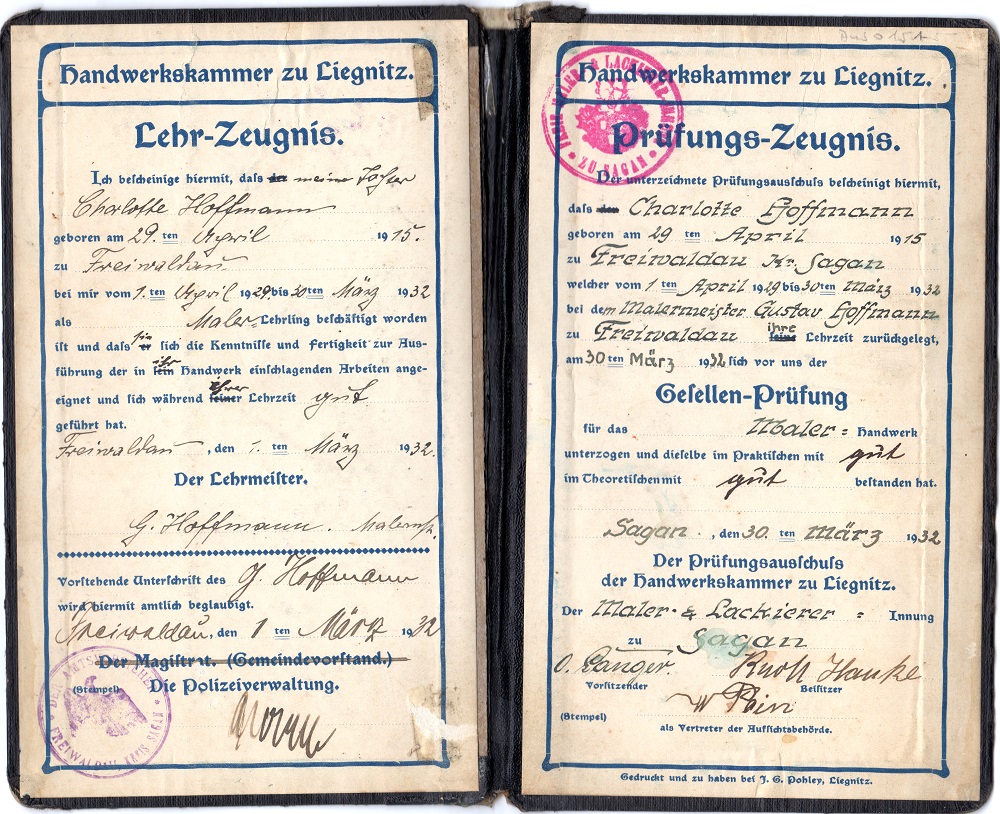 Handwerkskammer zu Liegnitz.
Lehr-Zeugnis.
Ich bescheinige hiermit, dass der meine Tochter
Charlotte Hoffmann
geboren am 29. ten April 1915.
zu Freiwaldau
bei mir vom 1. ten April 1929 bis 20 ten März 1932
als Maler-Lehrling beschäftigt worden
ist und dass er sie sich die Kenntnisse und Fertigkeit zur Aus-
führung der in sein ihr Handwerk einschlagenden Arbeiten ange-
eignet und sich während seiner ihrer Lehrzeit gut
geführt hat.
Freiwaldau, den 1. ten März 1932.
Der Lehrmeister.
G. Hoffmann. Malermstr.
Vorstehende Unterschrift des G. Hoffmann
wird hiermit amtlich beglaubigt.
Freiwaldau, den 1 ten März 1932
Der Magistrat. (Gemeindevorstand.)
(Stempel) Die Polizeiverwaltung.
DER AMTSVORSTEHER
FREIWALDAU, KREIS SAGAN
Handwerkskammer zu Liegnitz.
MALER & LACKIERER
ZU SAGAN
Prüfungs-Zeugnis.
Der unterzeichnete Prüfungsausschuss bescheinigt hiermit,
dass den Charlotte Hoffmann
geboren am 29 ten April 1915
zu Freiwaldau Kr. Sagan
welcher vom 1 ten April 1929 bis 30 ten März 1932
bei dem Malermeister Gustav Hoffmann
zu Freiwaldau seine ihre Lehrzeit zurückgelegt,
am 30 ten März 1932 sich vor uns der
Gesellen-Prüfung
für das Maler- Handwerk
unterzogen und dieselbe im Praktischen mit gut
im Theoretischen mit gut bestanden hat.
Sagan, den 30. ten März 1932
Der Prüfungsausschuss
der Handwerkskammer zu Liegnitz.
Der Maler- & Lackierer- Innung
zu Sagan
O. Langer. Knoll Hanke
Vorsitzender Beisitzer
(Stempel)
als Vertreter der Aufsichtsbehörde.
Gedruckt und zu haben bei J. G. Pohley, Liegnitz.